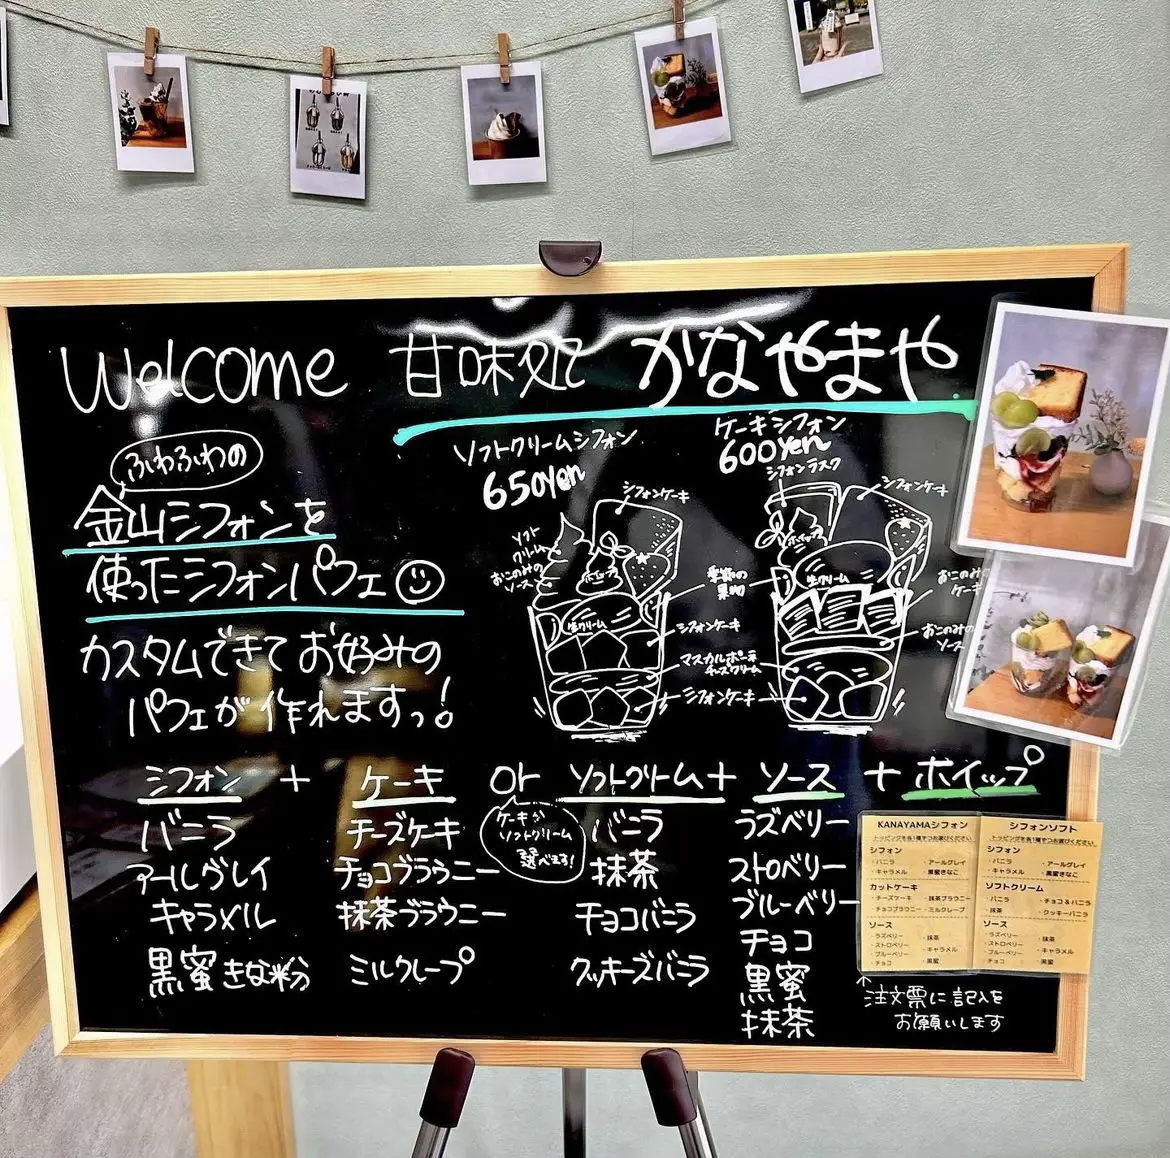 Welcome 甘味処 かなやまや
ふわふわの
金山シフォンを
使ったシフォンパフェ
カスタムできてお好みの
パフェが作れますっ!
ソフトクリームシフォン
650yen
シフォンケーキ
ソフト
クリーム
おこのみの
ソース
ホイップ
生クリーム
ケーキシフォン
600yen
シフォンラスク
シフォンケーキ
ホイップ
生クリーム
季節の
果物
シフォンケーキ
マスカルポーネ
チーズクリーム
シフォンケーキ
おこのみの
ケーキ
おこのみの
ソース
シフォン + ケーキ or ソフトクリーム + ソース + ホイップ
ケーキか
ソフトクリーム
選べる!
バニラ
アールグレイ
キャラメル
黒蜜きな粉
チーズケーキ
チョコブラウニー
抹茶ブラウニー
ミルクレープ
バニラ
抹茶
チョコバニラ
クッキーズバニラ
ラズベリー
ストロベリー
ブルーベリー
チョコ
黒蜜
抹茶
KANAYAMAシフォン
トッピングを各1種ずつお選びください
シフォン
・バニラ ・アールグレイ
・キャラメル ・黒蜜きなこ
カットケーキ
・チーズケーキ ・抹茶ブラウニー
・チョコブラウニー ・ミルクレープ
ソース
・ラズベリー ・抹茶
・ストロベリー ・キャラメル
・ブルーベリー ・黒蜜
・チョコ
シフォンソフト
トッピングを各1種ずつお選びください
シフォン
・バニラ ・アールグレイ
・キャラメル ・黒蜜きなこ
ソフトクリーム
・バニラ ・チョコ&バニラ
・抹茶 ・クッキーバニラ
ソース
・ラズベリー ・抹茶
・ストロベリー ・キャラメル
・ブルーベリー ・黒蜜
・チョコ
↑
注文票に記入を
お願いします